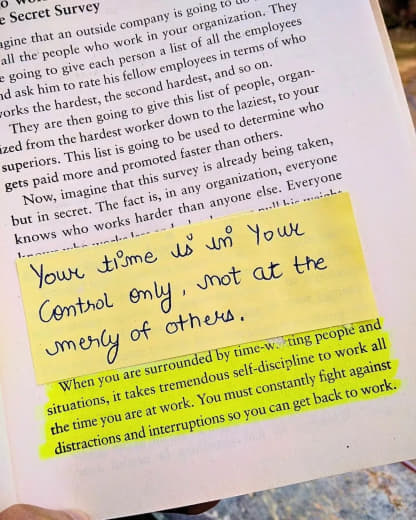 e Secret Survey
agine that an outside company is going to
all the people who work in your organization. They
e going to give each person a list of all the employees
nd ask him to rate his fellow employees in terms of who
works the hardest, the second hardest, and so on.
They are then going to give this list of people, organ-
ized from the hardest worker down to the laziest, to your
superiors. This list is going to be used to determine who
gets paid more and promoted faster than others.
Now, imagine that this survey is already being taken,
but in secret. The fact is, in any organization, everyone
knows who works harder than anyone else. Everyone
Your time is in Your
Control only, not at the
mercy of others.
When you are surrounded by time-wasting people and
situations, it takes tremendous self-discipline to work all
the time you are at work. You must constantly fight against
distractions and interruptions so you can get back to work.